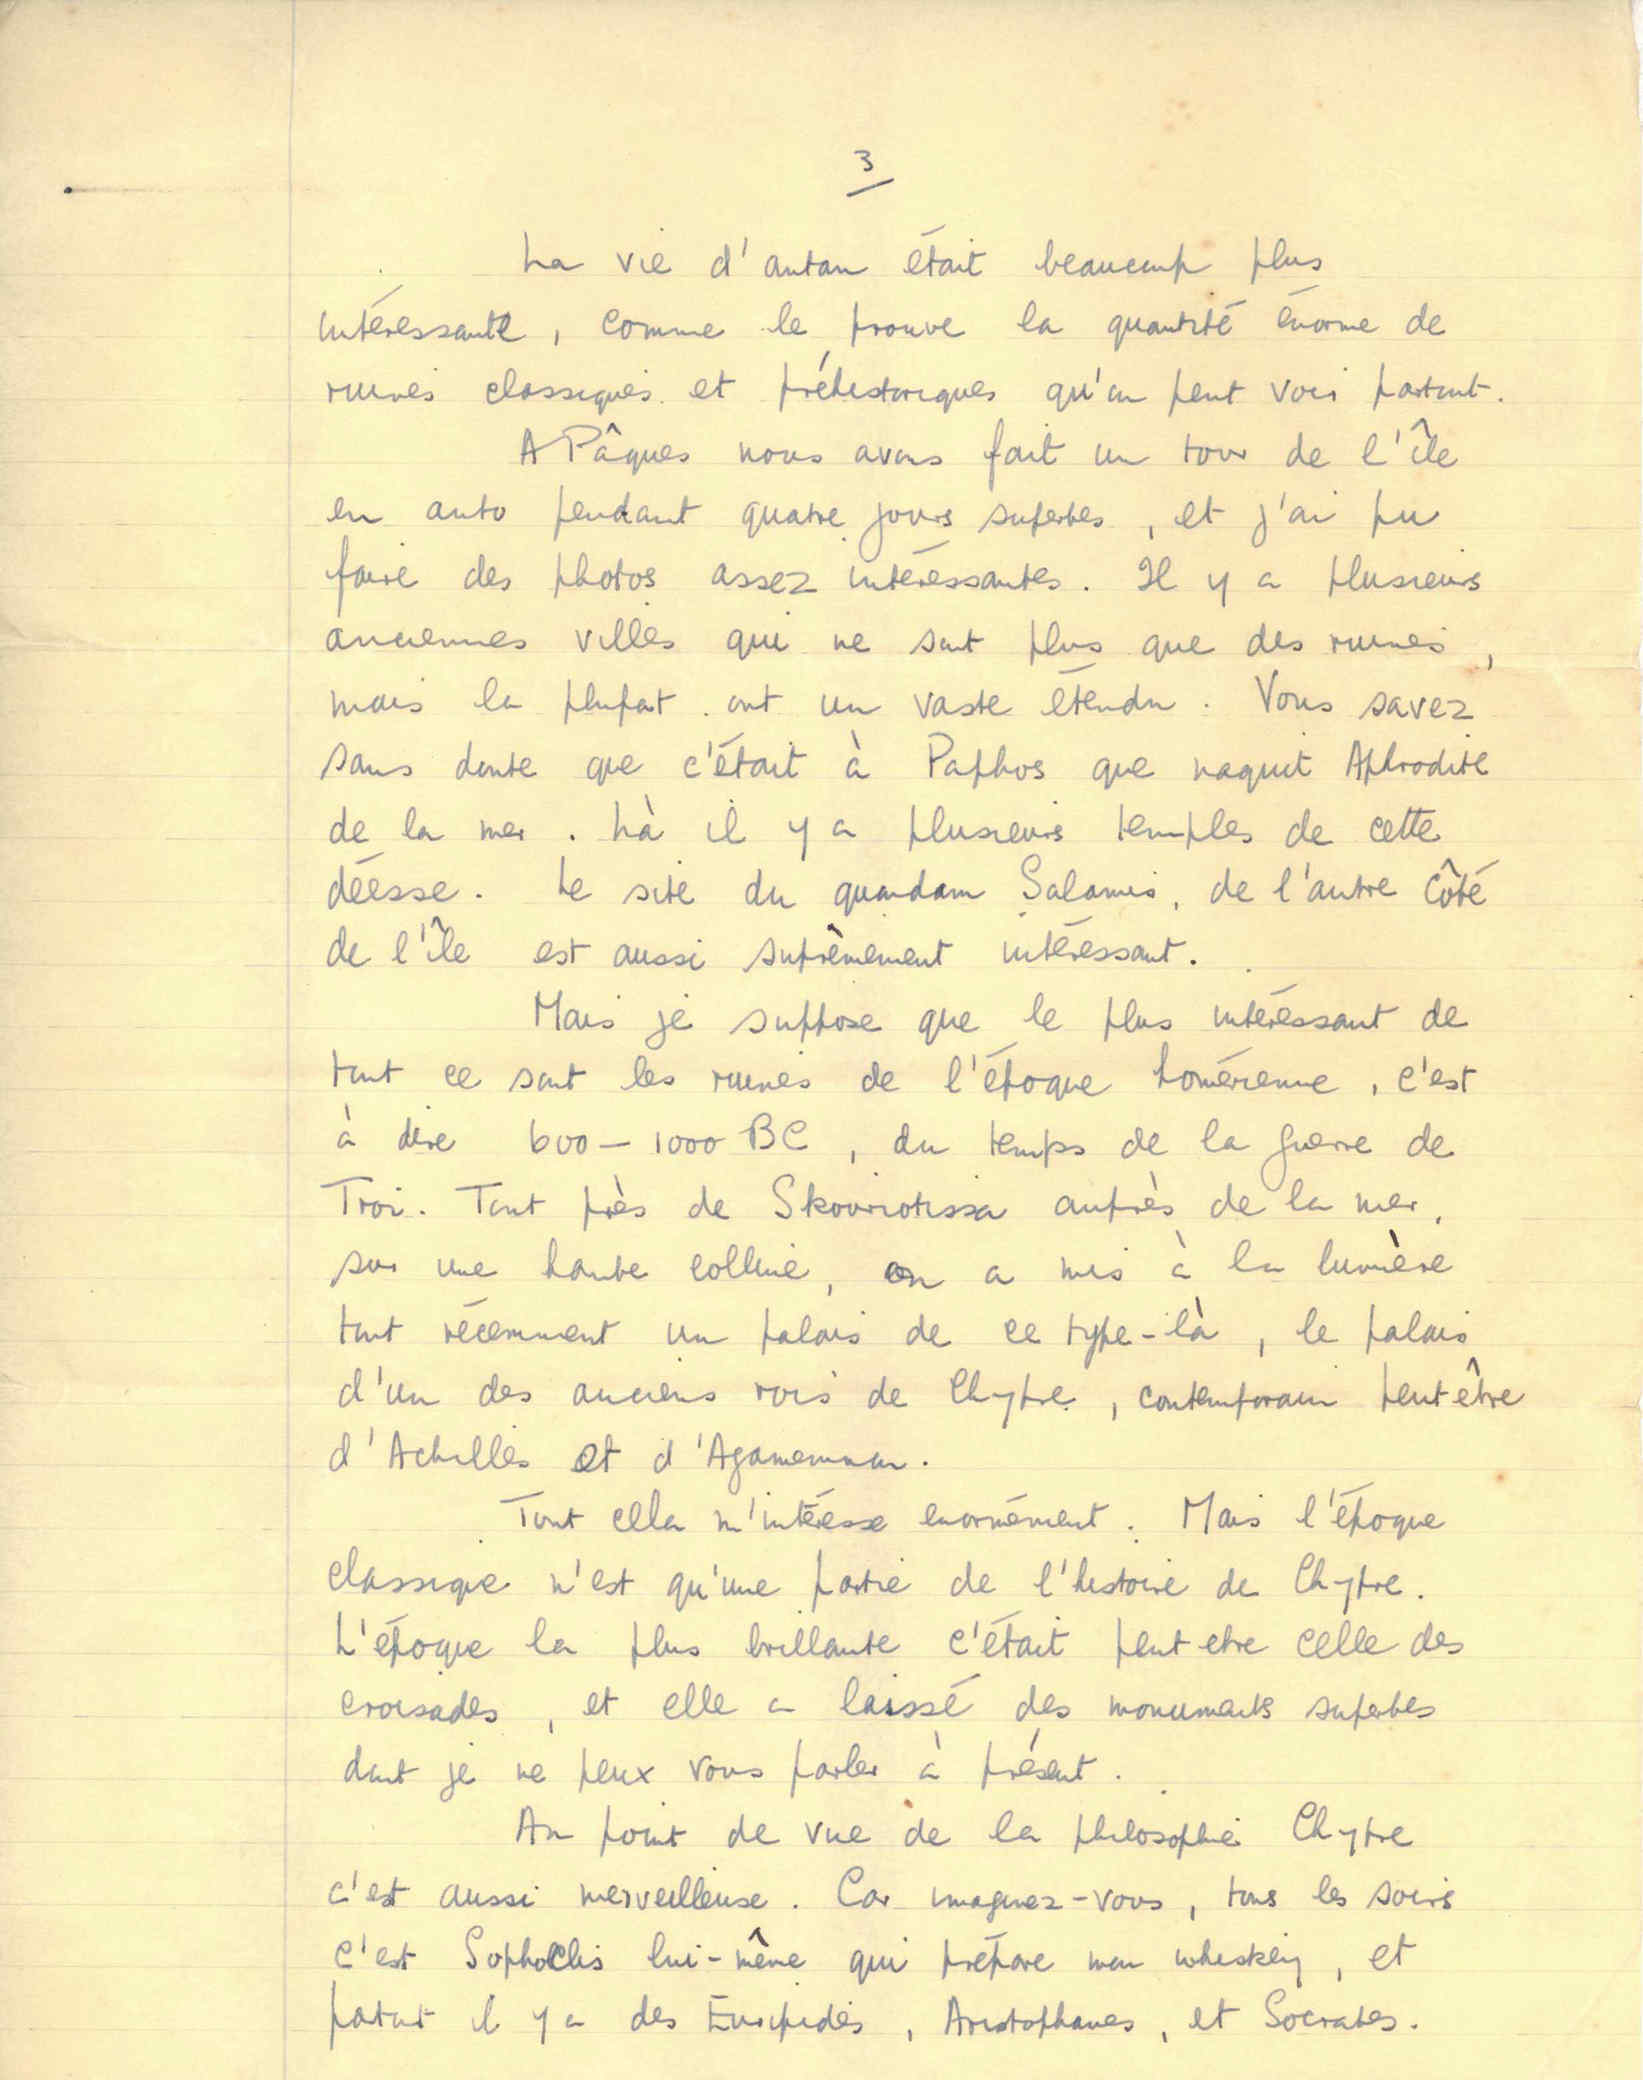 3
La vie d'antan était beaucoup plus
intéressante, comme le prouve la quantité énorme de
ruines classiques et préhistoriques qu'on peut voir partout.
A Pâques nous avons fait un tour de l'île
en auto pendant quatre jours superbes, et j'ai pu
faire des photos assez intéressantes. Il y a plusieurs
anciennes villes qui ne sont plus que des ruines,
mais la plupat ont un vaste étendu. Vous savez
sans doute que c'était à Paphos que naquit Aphrodite
de la mer. Là il y a plusieurs temples de cette
déesse. Le site du quondam Salamis, de l'autre côté
de l'île est aussi suprèmement intéressant.
Mais je suppose que le plus intéressant de
tout ce sont les ruines de l'époque homérienne, c'est
à dire 600 – 1000 BC, du temps de la guerre de
Troi. Tout près de Skouriotissa auprès de la mer,
sur une haute colline, on a mis à la lumière
tout récemment un palais de ce type-là, le palais
d'un des anciens rois de Chypre, contemporain peut être
d'Achilles et d'Agamemnon.
Tout cela m'intéresse enormément. Mais l'époque
classique n'est qu'une partie de l'histoire de Chypre.
L'époque la plus brillante c'était peut etre celle des
croisades, et elle a laissé des monuments superbes
dont je ne peux vous parler à présent.
Au point de vue de la philosophie Chypre
c'est aussi merveilleuse. Car imaginez-vous, tous les soirs
c'est Sophoclis lui-même qui prépare mon whiskey, et
partout il y a des Euripides, Aristophanes, et Socrates.